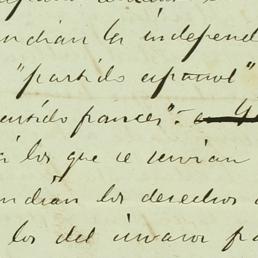 ndian la independ
"partido español"
artido francés".-
i los que se servian
ndian los derechos
los del invasor pa